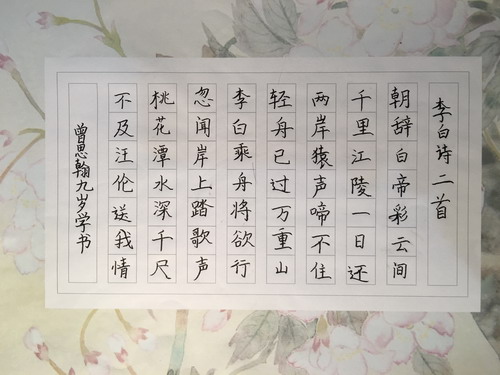 李白诗二首
朝辞白帝彩云间
千里江陵一日还
两岸猿声啼不住
轻舟已过万重山
李白乘舟将欲行
忽闻岸上踏歌声
桃花潭水深千尺
不及汪伦送我情
曾思翰九岁学书